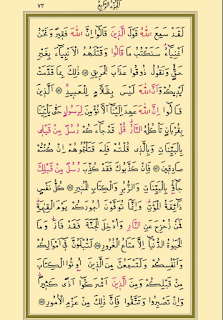 الجزء الرابع
٧٣
لَقَدْ سَمِعَ اللهُ قَوْلَ الَّذِينَ قَالُوا اِنَّ اللهَ فَقِيرٌ وَنَحْنُ
اَغْنِيَاءُ سَنَكْتُبُ مَا قَالُوا وَقَتْلَهُمُ الْاَنْبِيَاءَ بِغَيْرِ
حَقٍّ وَنَقُولُ ذُوقُوا عَذَابَ الْحَرِيقِ ذٰلِكَ بِمَا قَدَّمَتْ
اَيْدِيكُمْ وَاَنَّ اللهَ لَيْسَ بِظَلَّامٍ لِلْعَبِيدِ اَلَّذِينَ
قَالُوا اِنَّ اللهَ عَهِدَ اِلَيْنَا اَلَّا نُؤْمِنَ لِرَسُولٍ حَتّٰى يَأْتِيَنَا
بِقُرْبَانٍ تَأْكُلُهُ النَّارُ قُلْ قَدْ جَاءَكُمْ رُسُلٌ مِنْ قَبْلِي
بِالْبَيِّنَاتِ وَبِالَّذِي قُلْتُمْ فَلِمَ قَتَلْتُمُوهُمْ اِنْ كُنْتُمْ
صَادِقِينَ فَاِنْ كَذَّبُوكَ فَقَدْ كُذِّبَ رُسُلٌ مِنْ قَبْلِكَ
جَاؤُ بِالْبَيِّنَاتِ وَالزُّبُرِ وَالْكِتَابِ الْمُنِيرِ كُلُّ نَفْسٍ
ذَائِقَةُ الْمَوْتِ وَاِنَّمَا تُوَفَّوْنَ اُجُورَكُمْ يَوْمَ الْقِيٰمَةِ
فَمَنْ زُحْزِحَ عَنِ النَّارِ وَاُدْخِلَ الْجَنَّةَ فَقَدْ فَازَ وَمَا
الْحَيٰوةُ الدُّنْيَا اِلَّا مَتَاعُ الْغُرُورِ لَتُبْلَوُنَّ فِي اَمْوَالِكُمْ
وَاَنْفُسِكُمْ وَلَتَسْمَعُنَّ مِنَ الَّذِينَ اُوتُوا الْكِتَابَ
مِنْ قَبْلِكُمْ وَمِنَ الَّذِينَ اَشْرَكُوا اَذًى كَثِيرًا
وَاِنْ تَصْبِرُوا وَتَتَّقُوا فَاِنَّ ذٰلِكَ مِنْ عَزْمِ الْاُمُورِ